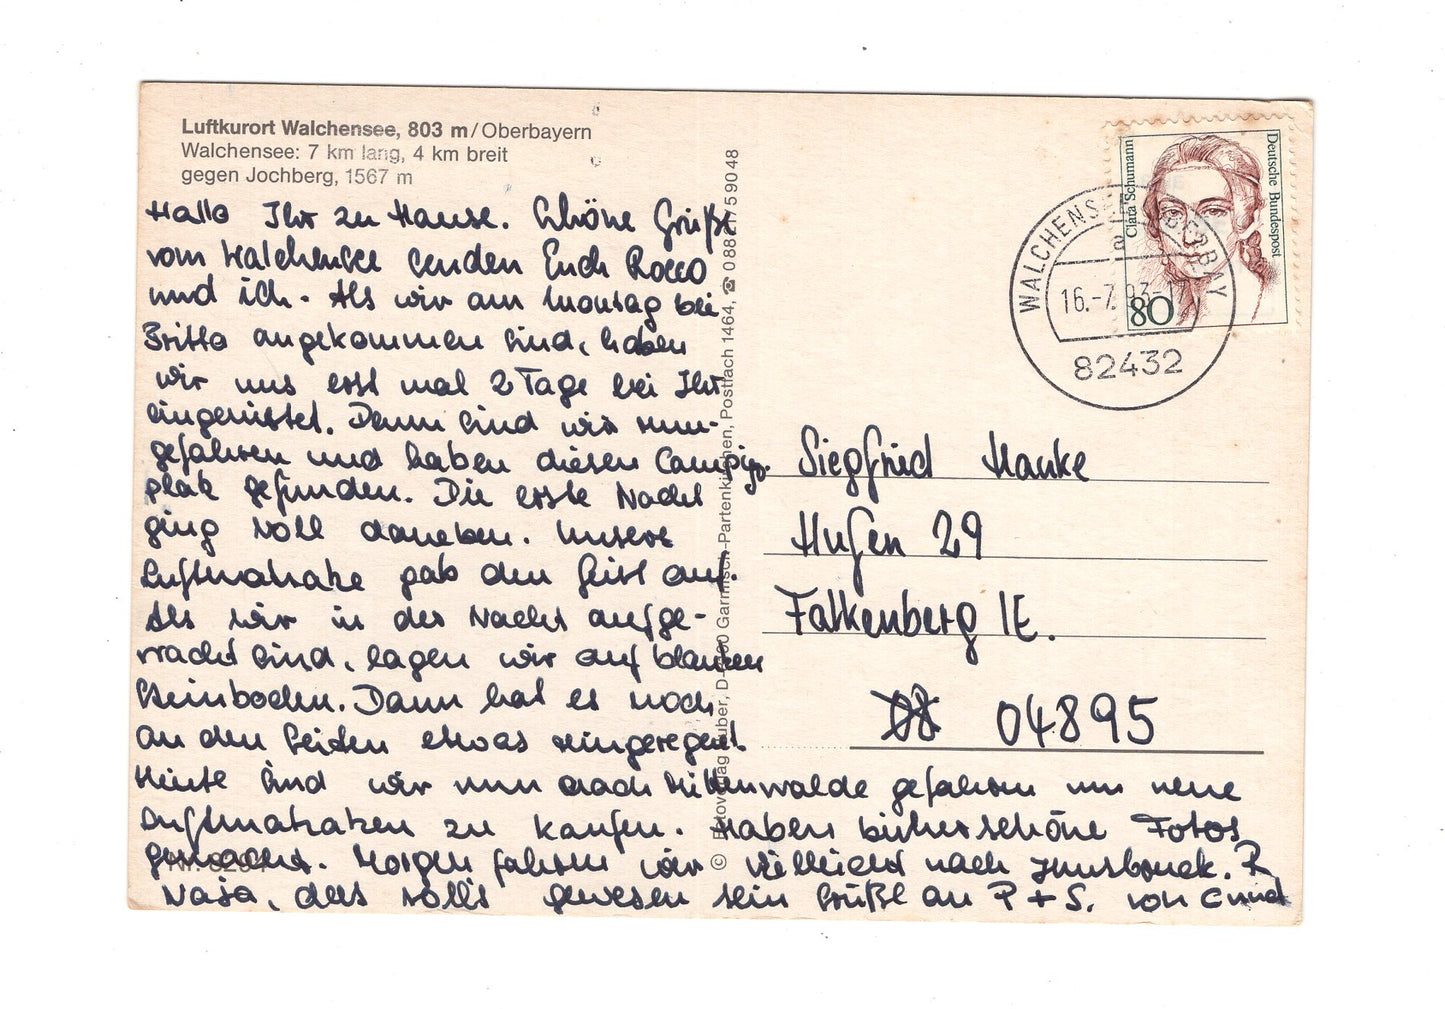 Luftkurort Walchensee, 803 m/Oberbayern
Walchensee: 7 km lang, 4 km breit
gegen Jochberg, 1567 m
Hallo Ihr zu Hause. Schöne Grüße
vom Walchensee senden Euch Rocco
und ich. Als wir am Montag bei
Britta angekommen sind, haben
wir uns erst mal 2 Tage bei Ihr
eingenistet. Dann sind wir rum-
gefahren und haben diesen Camping-
platz gefunden. Die erste Nacht
ging voll daneben. Unsere
Luftmatratze gab den Geist auf.
Als wir in der Nacht aufge-
wacht sind, lagen wir auf blankem
Steinboden. Dann hat es noch
an den Seiten etwas reingeregnet.
Heute sind wir nun nach Mittenwalde gefahren um neue
Luftmatratzen zu kaufen. Haben bisher schöne Fotos
gemacht. Morgen fahren wir vielleicht nach Innsbruck.
Naja, das soll's gewesen sein Grüße an P + S. von
Nr.
© Fotoverlag Huber, Garmisch-Partenkirchen, Postfach 1464, ☎ 08821/59048
Clara Schumann
Deutsche Bundespost
80
WALCHENSEE, OBERBAY
16.-7.93-
82432
Siegfried Hanke
Hufen 29
Falkenberg / E.
04895